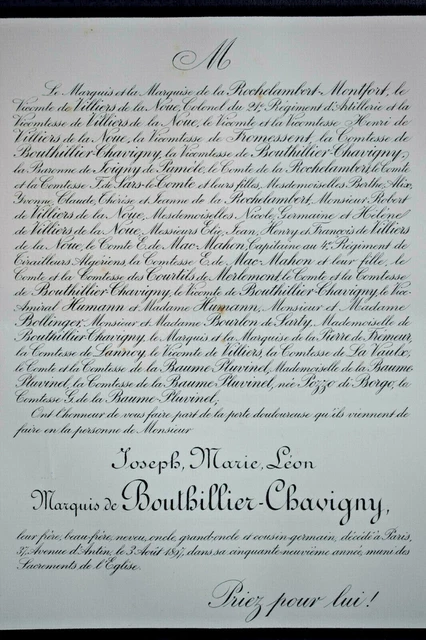 M
Le Marquis et la Marquise de la Rochelambert-Montfort, le
Vicomte de Villiers de la Noue, Colonel du 21e Régiment d'Artillerie et la
Vicomtesse de Villiers de la Noue, le Vicomte et la Vicomtesse Henri de
Villiers de la Noue, la Vicomtesse de Fromessent, la Comtesse de
Bouthillier-Chavigny, la Vicomtesse de Bouthillier-Chavigny,
la Baronne de Joigny de Pamele, le Comte de la Rochelambert, le Comte
et la Comtesse F. de Lars-le-Comte et leurs filles, Mesdemoiselles Berthe, Alix,
Yvonne, Claude, Thérèse et Jeanne de la Rochelambert, Monsieur Robert
de Villiers de la Noue, Mesdemoiselles Nicole, Germaine et Hélène
de Villiers de la Noue, Messieurs Elie, Jean, Henry et François de Villiers
de la Noue, le Comte E. de Mac-Mahon, Capitaine au 4e Régiment de
Tirailleurs Algériens, la Comtesse E. de Mac-Mahon et leur fille, le
Comte et la Comtesse des Courtils de Merlemont, le Comte et la Comtesse
de Bouthillier-Chavigny, le Vicomte de Bouthillier-Chavigny, le Vice-
Amiral Humann et Madame Humann, Monsieur et Madame
Bollinger, Monsieur et Madame Bourlon de Sarty, Mademoiselle de
Bouthillier-Chavigny, le Marquis et la Marquise de la Fierre de Frémeur,
la Comtesse de Lannoy, le Vicomte de Villiers, la Comtesse de La Vaulx,
le Comte et la Comtesse de la Baume Pluvinel, Mademoiselle de la Baume
Pluvinel, la Comtesse de la Baume Pluvinel, née Pozzo di Borgo, la
Comtesse G. de la Baume Pluvinel,
Ont l'honneur de vous faire part de la perte douloureuse qu'ils viennent de
faire en la personne de Monsieur
Joseph, Marie, Léon
Marquis de Bouthillier-Chavigny,
leur frère, beau-frère, neveu, oncle, grand-oncle et cousin-germain, décédé à Paris,
37, Avenue d'Antin, le 3 Août 1897, dans sa cinquante-neuvième année, muni des
Sacrements de l'Eglise.
Priez pour lui !